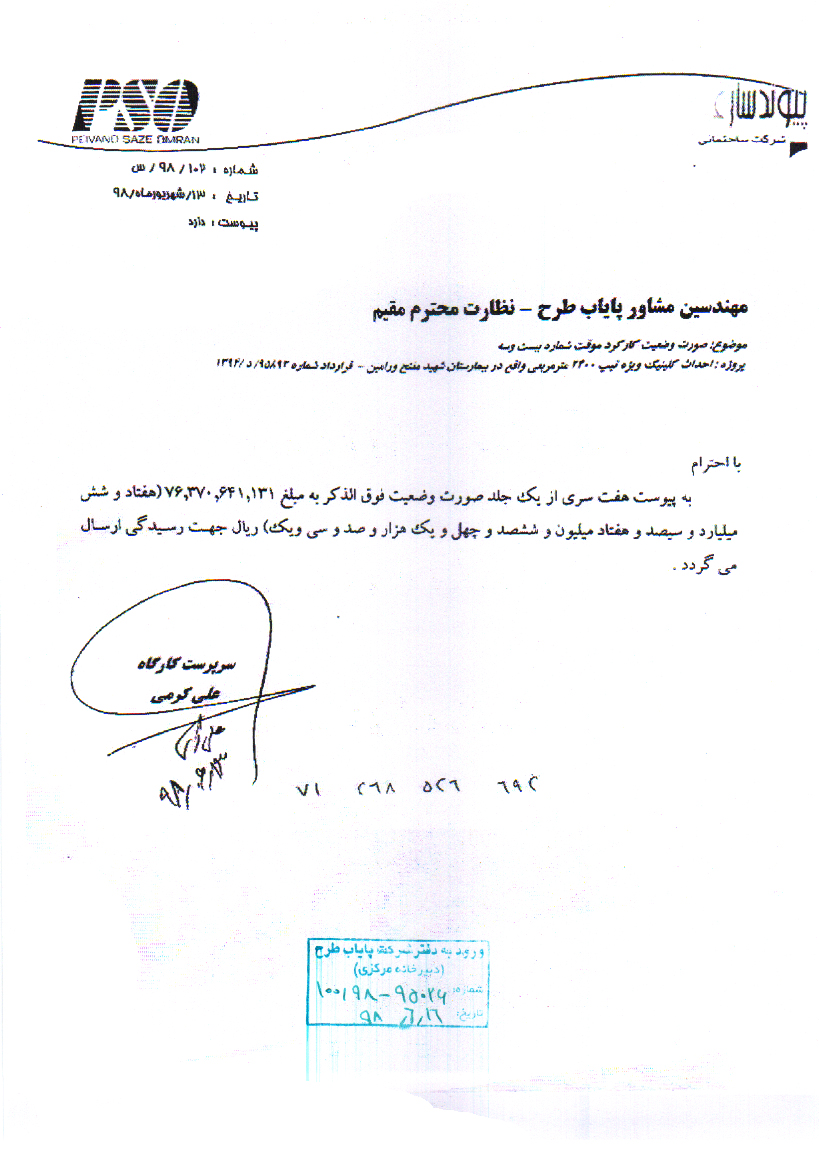 PEIVAND SAZE OMRAN
شرکت ساختمانی
شماره : ۱۰۲ / ۹۸ / س
تاریخ : ۱۳/شهریورماه/۹۸
پیوست : دارد
مهندسین مشاور پایاب طرح – نظارت محترم مقیم
موضوع: صورت وضعیت کارکرد موقت شماره بیست وسه
پروژه : احداث کلینیک ویژه تیپ ۲۴۰۰ مترمربعی واقع در بیمارستان شهید مفتح ورامین – قرارداد شماره ۹۵۸۹۳/د/۱۳۹۲
با احترام
به پیوست هفت سری از یک جلد صورت وضعیت فوق الذکر به مبلغ ۷۶,۳۷۰,۶۴۱,۱۳۱(هفتاد و شش
میلیارد و سیصد و هفتاد میلیون و ششصد و چهل و یک هزار و صد و سی ویک) ریال جهت رسیدگی ارسال
می گردد .
سرپرست کارگاه
علی کرمی
۷۱ ۲۶۸ ۵۲۶ ۶۹۲
ورود به دفتر شرکت پایاب طرح
(دبیرخانه مرکزی)
شماره: ۱۰۰,۹۸–۹۵۰۲۷
تاریخ: ۹۸,۶,۱۶